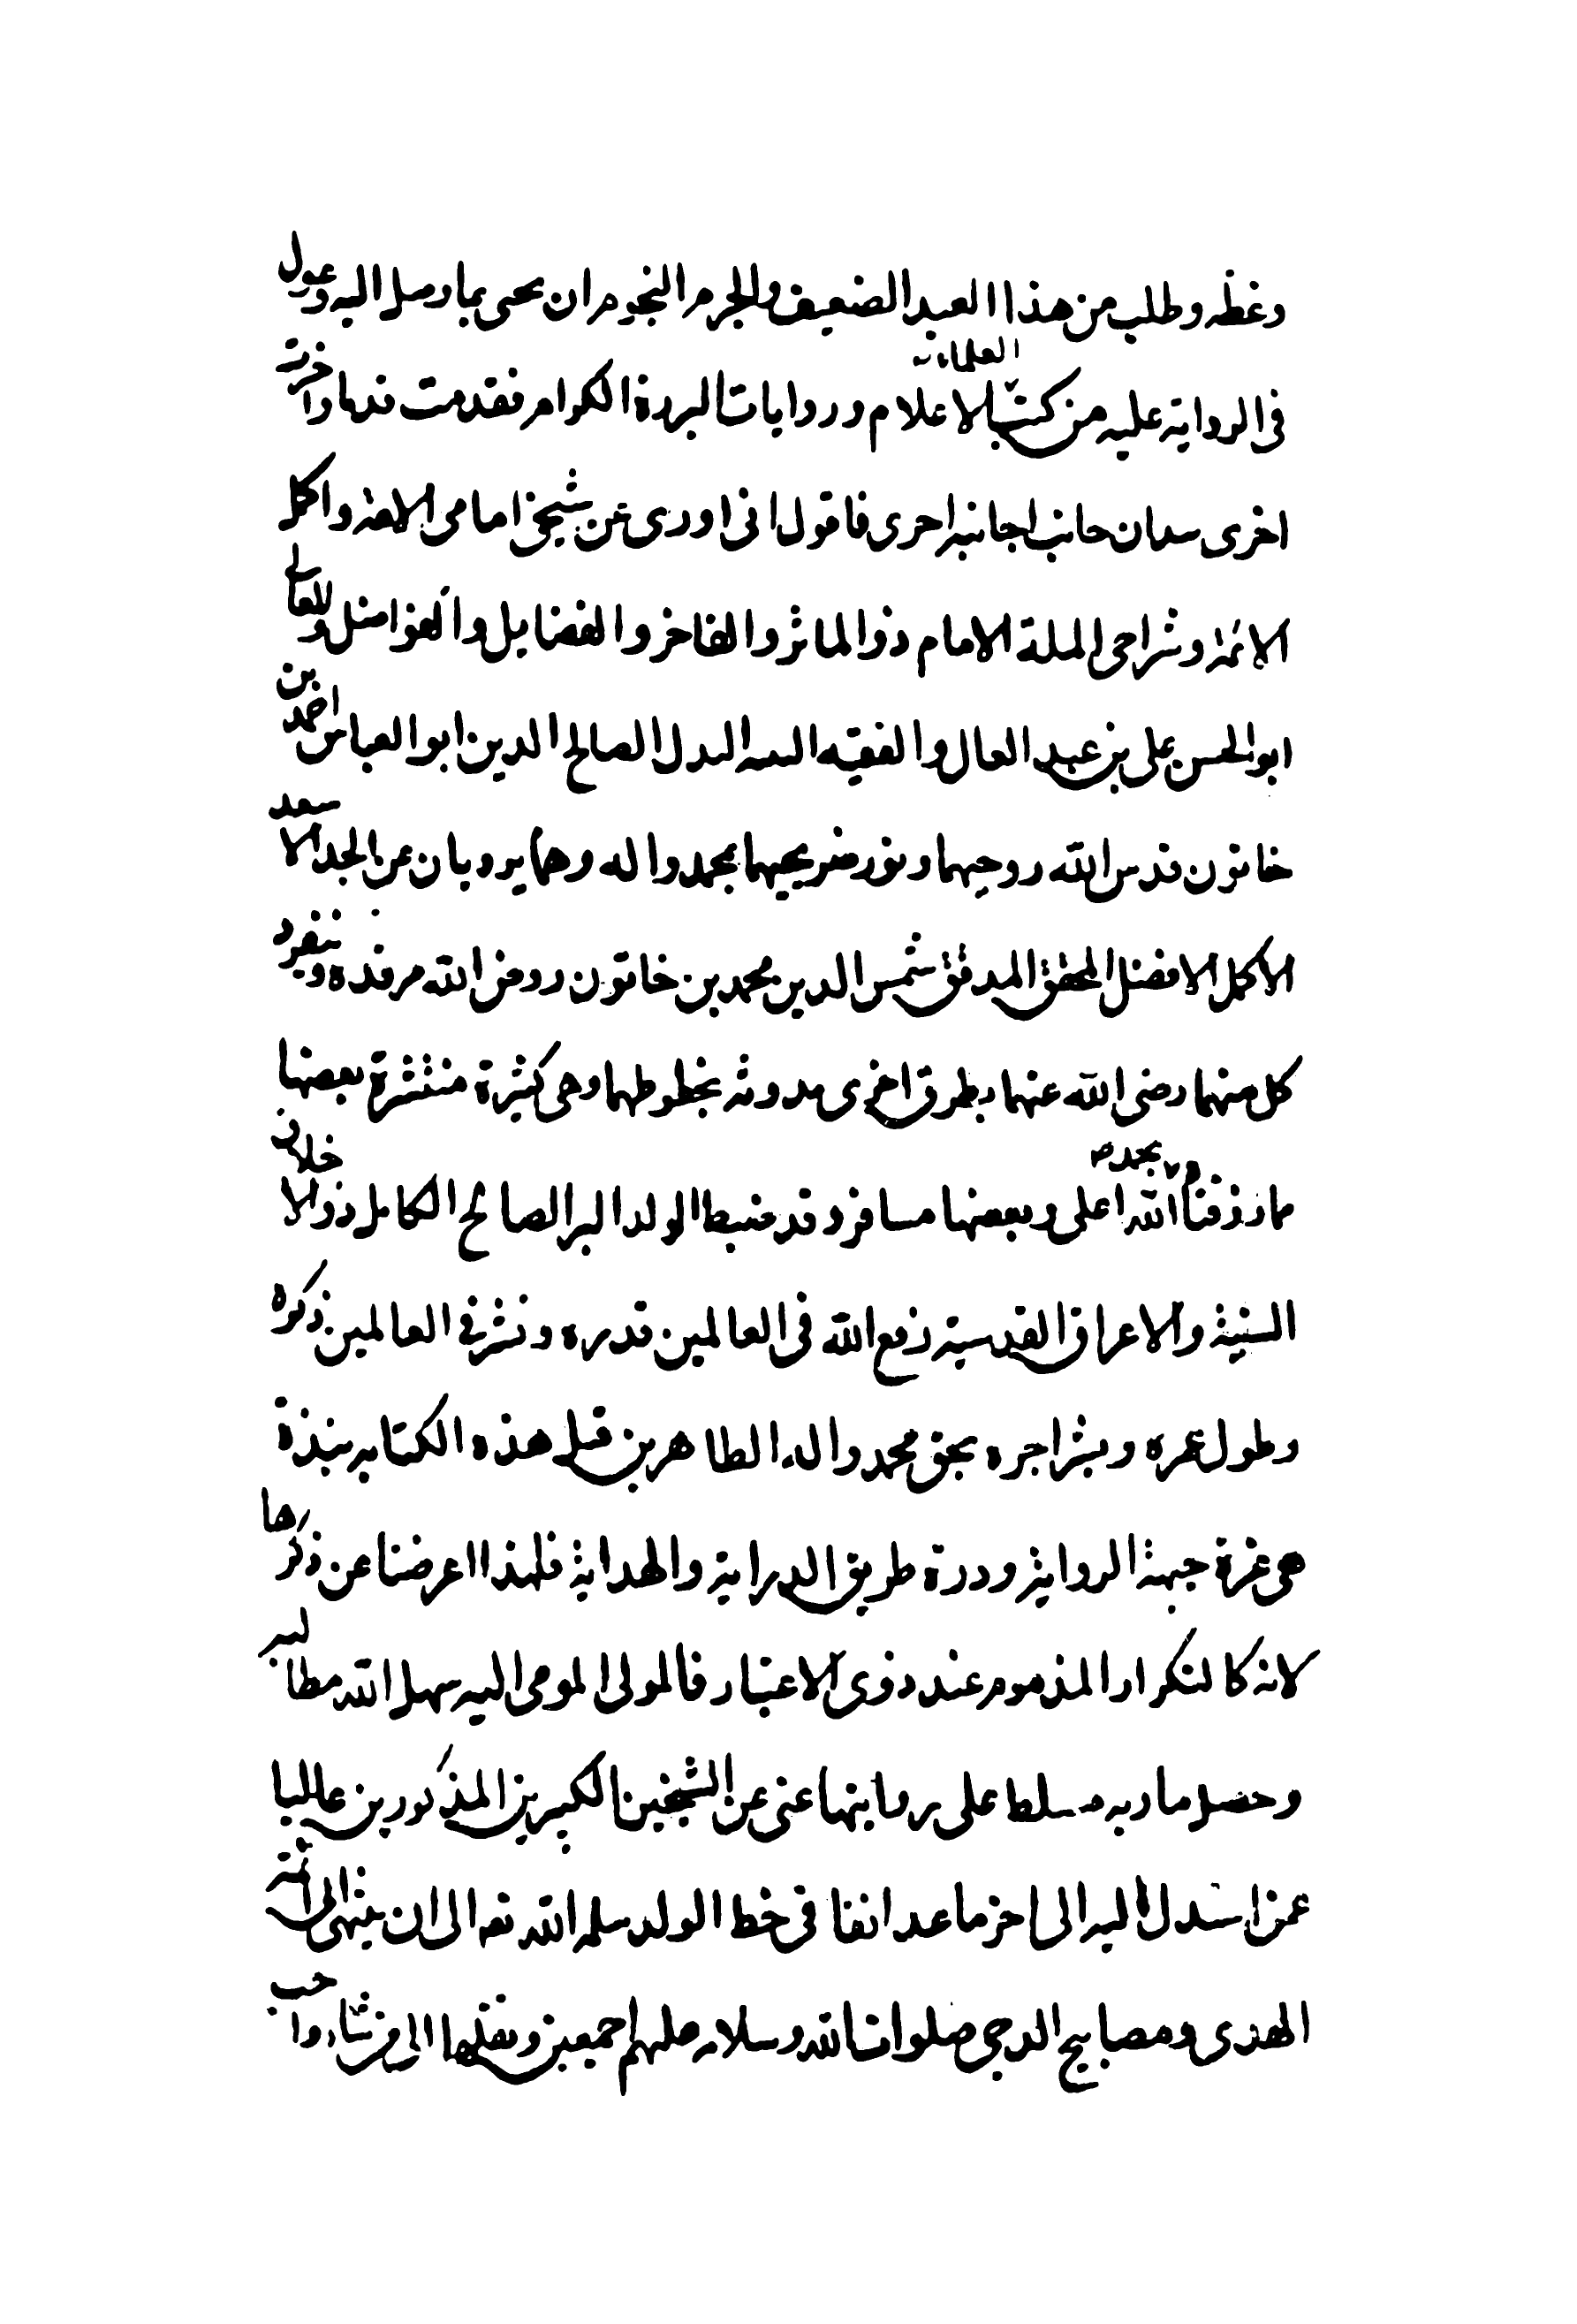 وغطه وطلب من هذا العبد الضعيف والجرم النجوم ان بما وصل اليه وعول
فى الرواية عليه من كتب العلماء الاعلام وروايات البررة الكرام فقدمت قدما واخرت
اخرى فاقول انى اروى عن شيخى امامى الامة واكمل
الائمة وسراجى الملة الامام ذو الماثر والمفاخر والفضايل والفواضل والمعالى
ابو الحسن على بن عبد العال والفقيه البدل الصالح الدين ابو العباس احمد بن
خاتون قدس الله روحيهما ونور ضريحيهما بمحمد واله وهما يرويان عن الجد الاسعد
الاكمل الافضل المحقق المدقق شمس الدين محمد بن خاتون روض الله مرقده وينفرد
كل منهما رضى الله عنهما بطرق اخرى مدونة بخطوطهما وهى كثيرة منتشرة بعضها
مما وفقنا الله بحمده اعلى وبعضها مسافر وقد ضبط الولد البر الصالح الكامل ذو الاخلاق
السنية والاعراق القدسية رفع الله فى العالمين قدره ونشر فى العالمين ذكره
وطول عمره ويسر اجره بحق محمد واله الطاهرين قبل هذه الكتابه نبذة
هى غرة جبهة الرواية ودرة طريق الدراية والهداية فلهذا اعرضنا عن ذكرها
لانه كالتكرار المذموم عند ذوى الاعتبار فالمولى المومى اليه سهل الله مطالبه
وحصل ماربه مسلط على روايتها عنى عن الشيخين الكبيرين المذكورين عاليا
عمن اليه الى اخر ما عد انفا فى خط الولد سلمه الله تعالى الى ان ينتهى الى ائمة
الهدى ومصابيح الدجى صلوات الله وسلامه عليهم اجمعين ونقلها الى من شاء واحب